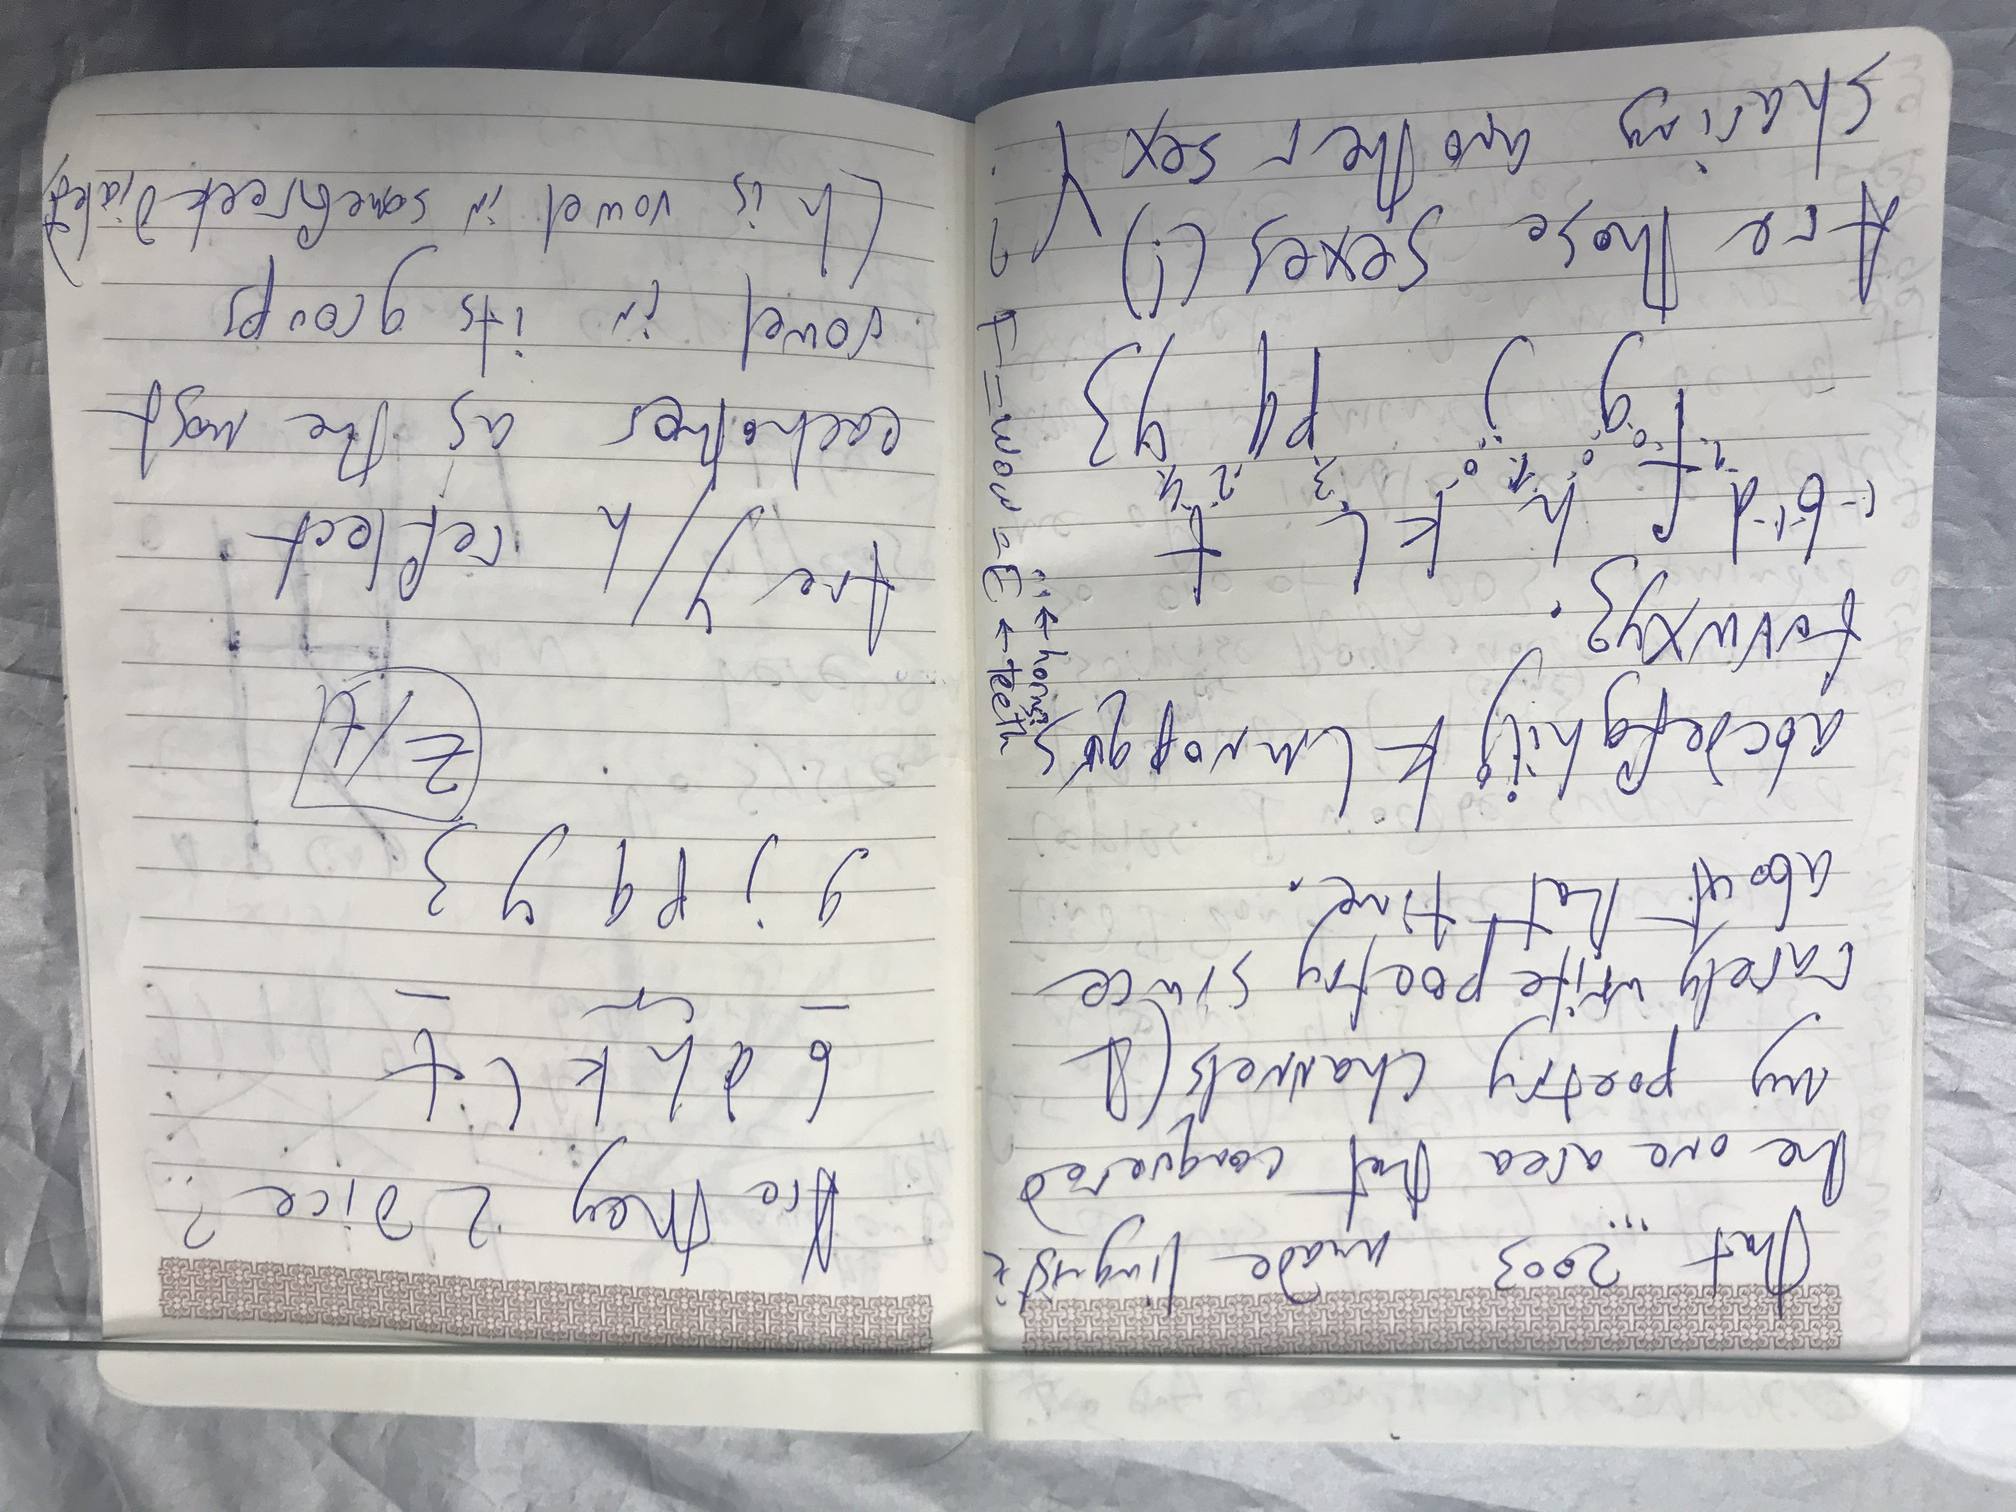 that 2003 made linguistic
the one area that conquered
my poetry channels (&
rarely write poetry since
about that time.
abcdefghijklmnopqrs
tuvwxyz.
b d f h k l t
f g j p q y z
Are those sexes (i)
sharing another sex Y ?
I = won = E ← teeth
← horns
Are they 2 Dice?
b d h k l t
g j p q y z
z/t
Are y/h reflect
eachother as the most
vowel in its groups
(h is vowel in some Greek Dialect)